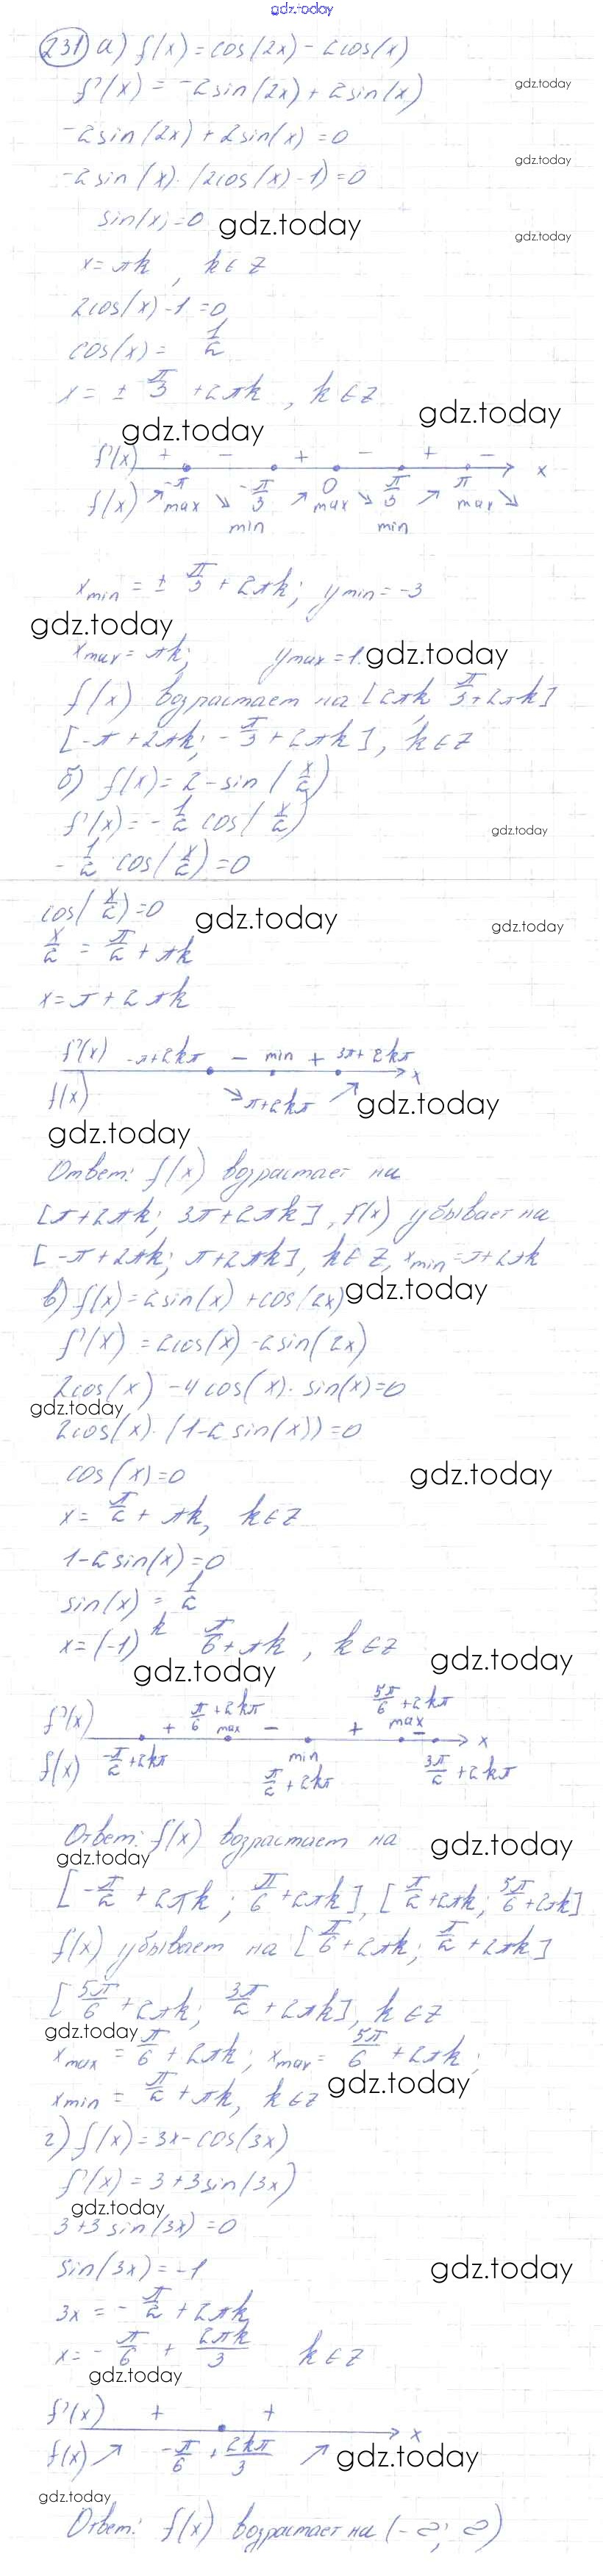 gdz.today
231 а) f(x) = cos(2x) - 2cos(x)
f'(x) = -2sin(2x) + 2sin(x)
gdz.today
-2sin(2x) + 2sin(x) = 0
gdz.today
-2sin(x)·(2cos(x)-1) = 0
sin(x) = 0 gdz.today
gdz.today
x = πk, k∈Z
2cos(x)-1 = 0
cos(x) = 1/2
x = ± π/3 + 2πk, k∈Z
gdz.today
gdz.today
f'(x) + - + - + - x
-π -π/3 0 π/3 π
f(x) ↗ max ↘ ↗ max ↘ ↗ max ↘
min min
x min = ± π/3 + 2πk; y min = -3
gdz.today
x max = πk; y max = 1. gdz.today
f(x) возрастает на [2πk; π/3+2πk]
[-π+2πk; -π/3+2πk], k∈Z
б) f(x) = 2 - sin(x/2)
f'(x) = -1/2 cos(x/2)
gdz.today
-1/2 cos(x/2) = 0
cos(x/2) = 0 gdz.today
gdz.today
x/2 = π/2 + πk
x = π + 2πk
f'(x) -π+2kπ - min + 3π+2kπ
x
f(x) ↘ π+2kπ ↗ gdz.today
gdz.today
Ответ: f(x) возрастает на
[π+2πk; 3π+2πk], f(x) убывает на
[-π+2πk; π+2πk], k∈Z, x min = π+2πk
в) f(x) = 2sin(x) + cos(2x) gdz.today
f'(x) = 2cos(x) - 2sin(2x)
2cos(x) - 4cos(x)·sin(x) = 0
gdz.today
2cos(x)·(1-2sin(x)) = 0
cos(x) = 0 gdz.today
x = π/2 + πk, k∈Z
1-2sin(x) = 0
sin(x) = 1/2
x = (-1)^k π/6 + πk, k∈Z
gdz.today
gdz.today
π/6 + 2kπ 5π/6 + 2kπ
f'(x) + max - + max - x
f(x) -π/2 + 2kπ min 3π/2 + 2kπ
π/2 + 2kπ
Ответ: f(x) возрастает на gdz.today
gdz.today
[-π/2 + 2πk; π/6 + 2πk], [π/2+2πk; 5π/6+2πk]
f(x) убывает на [π/6+2πk; π/2+2πk]
[5π/6 + 2πk; 3π/2 + 2πk], k∈Z
gdz.today
x max = π/6 + 2πk; x max = 5π/6 + 2πk;
x min = π/2 + πk, k∈Z gdz.today
г) f(x) = 3x - cos(3x)
f'(x) = 3 + 3sin(3x)
gdz.today
3+3 sin(3x) = 0
sin(3x) = -1 gdz.today
3x = -π/2 + 2πk
x = -π/6 + 2πk/3 k∈Z
gdz.today
f'(x) + + x
f(x) ↗ -π/6 + 2kπ/3 ↗ gdz.today
gdz.today
Ответ: f(x) возрастает на (-∞; ∞)